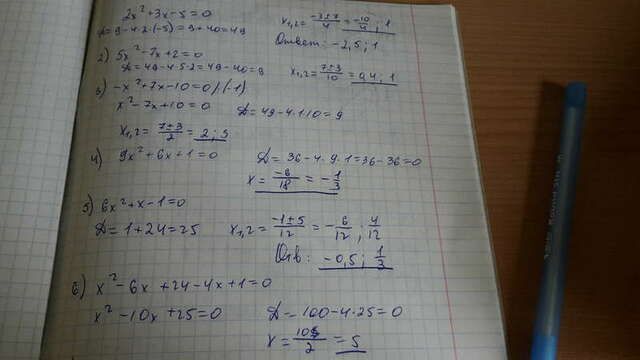 2x² + 3x - 5 = 0
D = 9 - 4·2·(-5) = 9 + 40 = 49
x₁,₂ = -3±7/4 = -10/4; 1
Ответ: -2,5; 1
2) 5x² - 7x + 2 = 0
D = 49 - 4·5·2 = 49 - 40 = 9
x₁,₂ = 7±3/10 = 0,4; 1
3) -x² + 7x - 10 = 0 /·(-1)
x² - 7x + 10 = 0
D = 49 - 4·1·10 = 9
x₁,₂ = 7±3/2 = 2; 5
4) 9x² + 6x + 1 = 0
D = 36 - 4·9·1 = 36 - 36 = 0
x = -6/18 = -1/3
5) 6x² + x - 1 = 0
D = 1 + 24 = 25
x₁,₂ = -1±5/12 = -6/12; 4/12
Отв: -0,5; 1/3
6) x² - 6x + 24 - 4x + 1 = 0
x² - 10x + 25 = 0
D = 100 - 4·25 = 0
x = 10/2 = 5